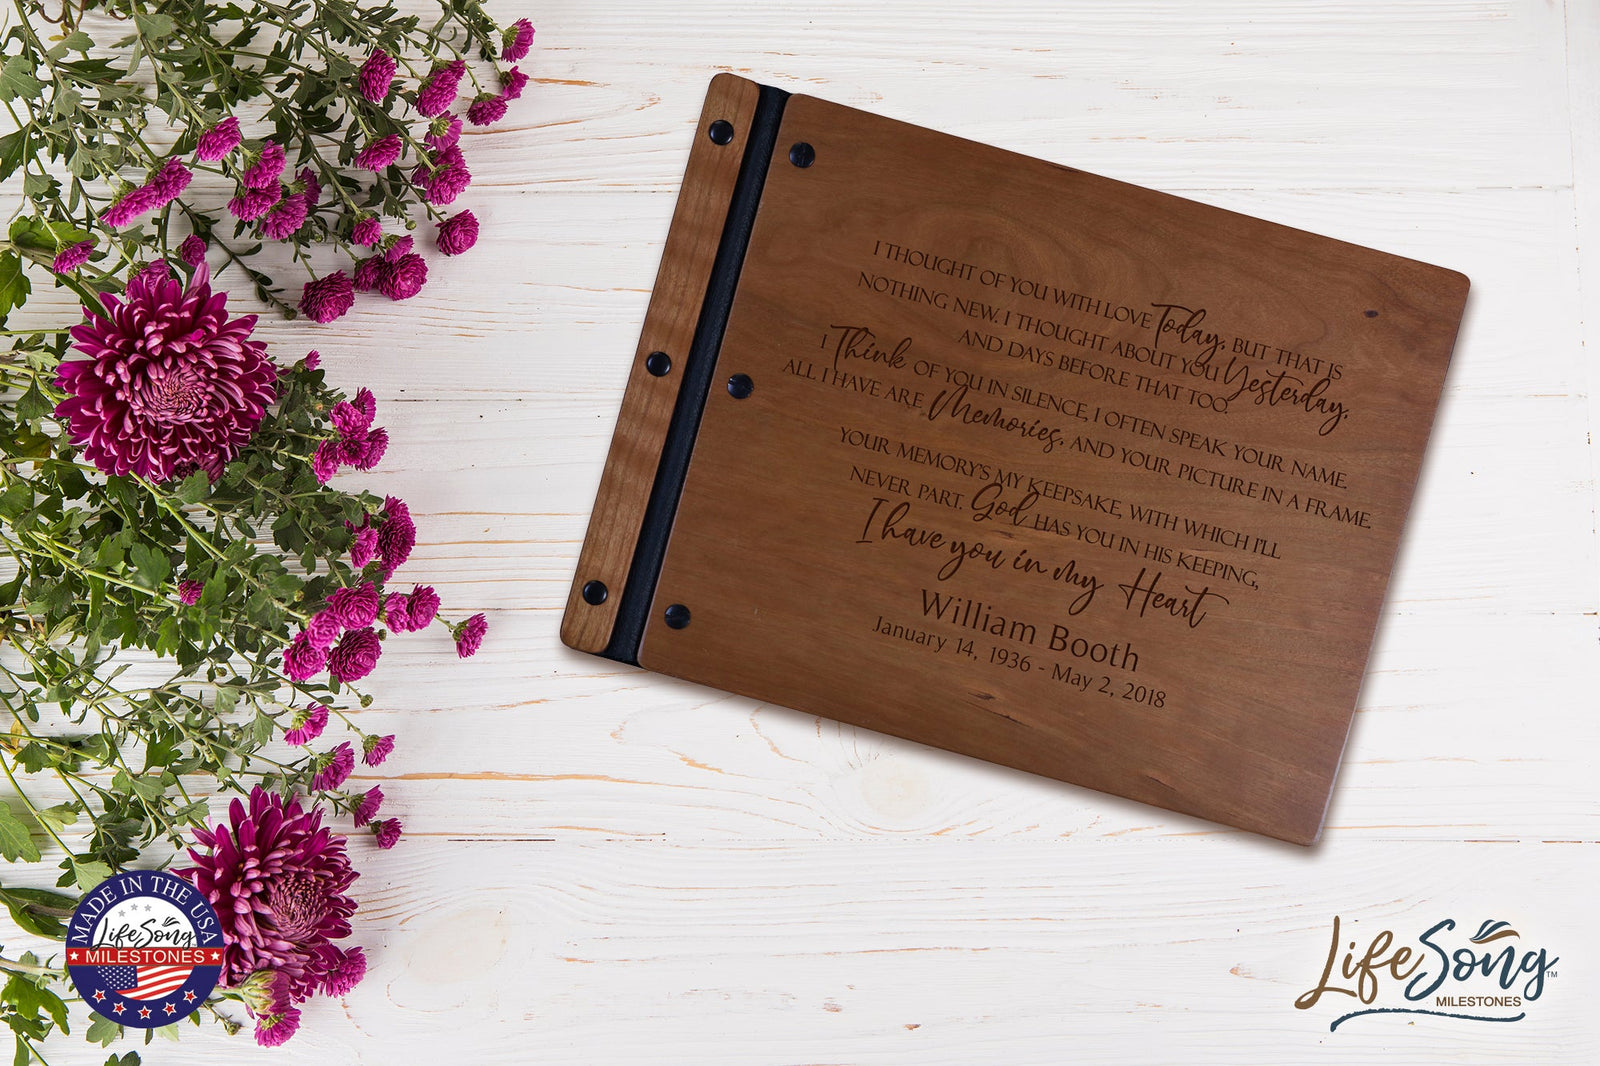 I THOUGHT OF YOU WITH LOVE Today, BUT THAT IS
NOTHING NEW. I THOUGHT ABOUT YOU Yesterday,
AND DAYS BEFORE THAT TOO.
I Think OF YOU IN SILENCE, I OFTEN SPEAK YOUR NAME.
ALL I HAVE ARE Memories, AND YOUR PICTURE IN A FRAME.
YOUR MEMORY'S MY KEEPSAKE, WITH WHICH I'LL
NEVER PART. God HAS YOU IN HIS KEEPING,
I have you in my Heart
William Booth
January 14, 1936 - May 2, 2018
MADE IN THE USA
LifeSong
MILESTONES
LifeSong™
MILESTONES